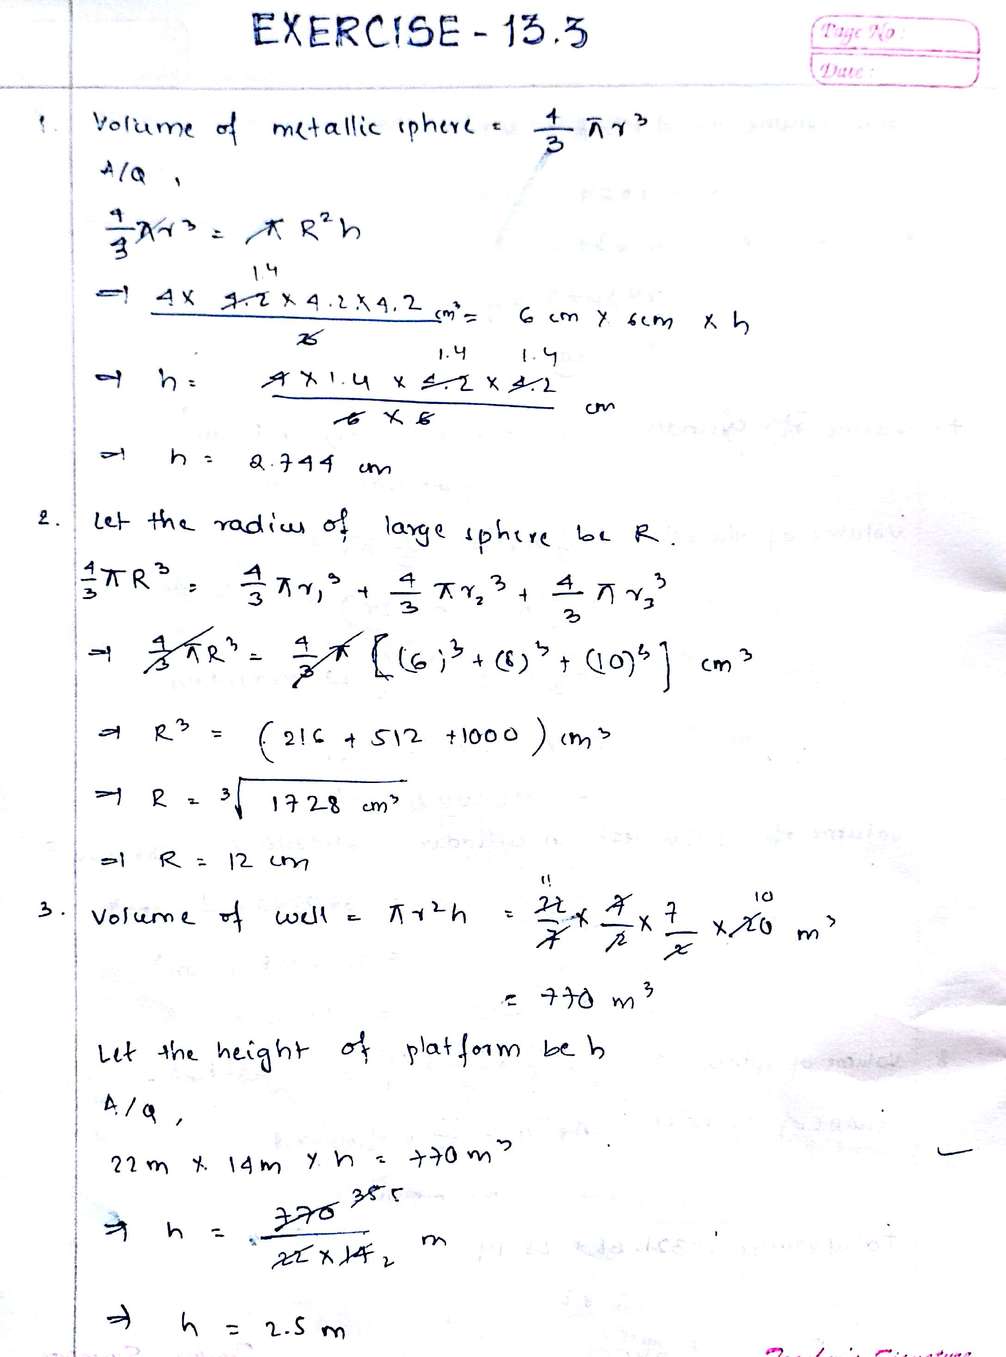 EXERCISE - 13.3
Page No :
Date :
1. Volume of metallic sphere = 4/3 πr³
A/Q ,
4/3 πr³ = πR²h
⇒ 4 × 4.2 1.4 × 4.2 × 4.2 / 3 cm³ = 6 cm × 6cm × h
⇒ h = 4 × 1.4 × 4.2 1.4 × 4.2 1.4 / 6 × 6 cm
⇒ h = 2.744 cm
2. Let the radius of large sphere be R.
4/3 πR³ = 4/3 πr₁³ + 4/3 πr₂³ + 4/3 πr₃³
⇒ 4/3 πR³ = 4/3 π [(6)³ + (8)³ + (10)³] cm³
⇒ R³ = (216 + 512 + 1000) cm³
⇒ R = ³√1728 cm³
⇒ R = 12 cm
3. Volume of well = πr²h = 22 11 / 7 × 7/2 × 7/2 × 20 10 m³
= 770 m³
Let the height of platform be h
A/Q ,
22m × 14m × h = 770m³
⇒ h = 770 35 5 / 22 × 14 2 m
⇒ h = 2.5 m